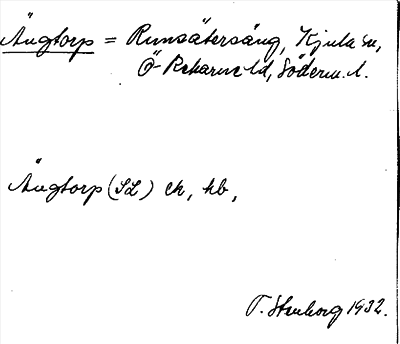 Ängtorp = Runsätersäng, Kjula sn,
Ö Rekarne hd, Söderm. l.
Ängtorp (SL) ek, hb,
T. Stenborg 1932.